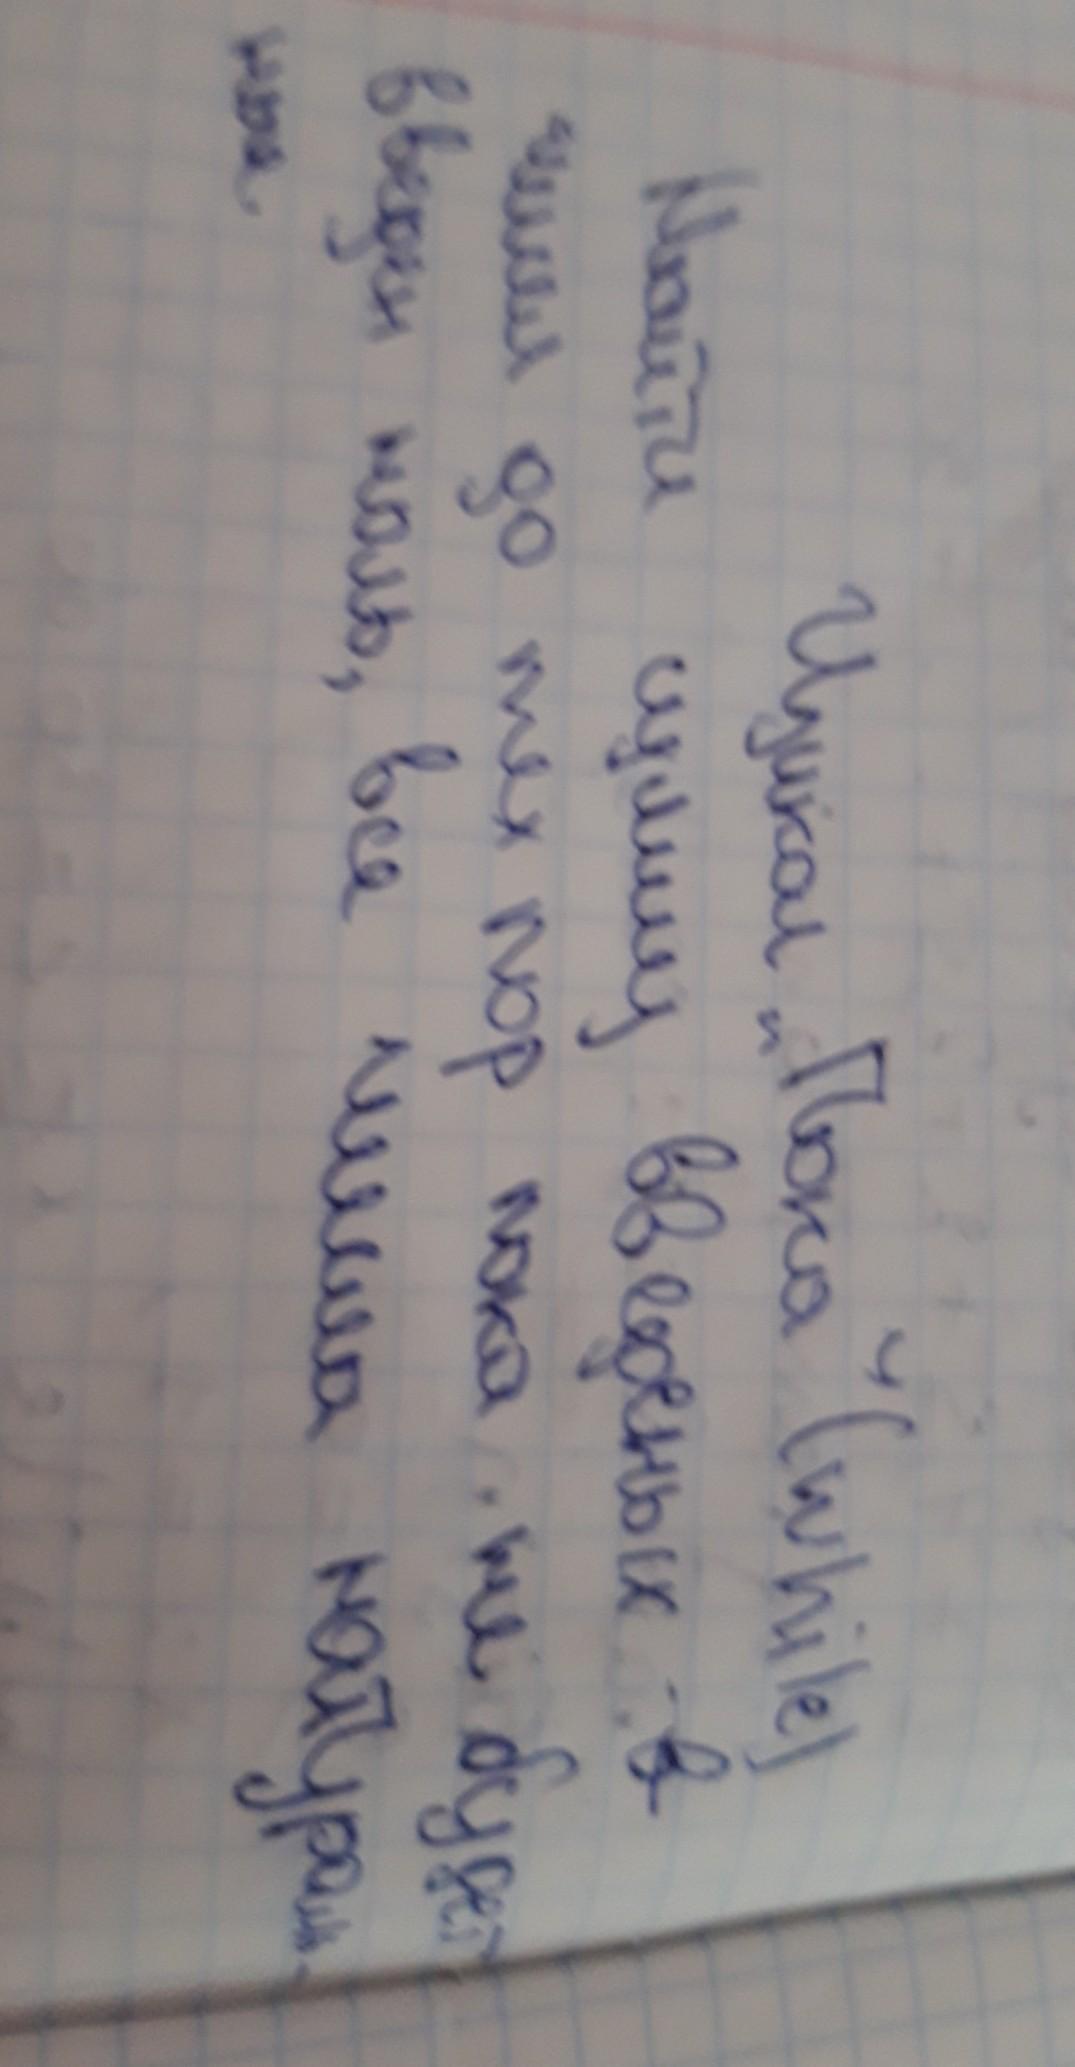 Циклом „Пока" (while)
Найти сумму введеных
чисел до тех пор пока не будет
введен ноль, все числа натураль-
ные.